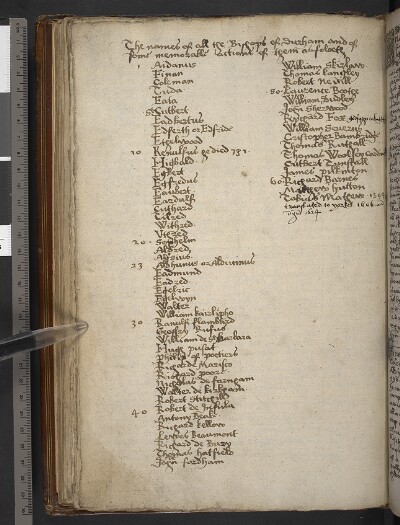 The names of all the Bishops of durham and of
some memorable actions of them as followes
1 Aidanus
Finan
Colman
Tuda
Eata
St Cutbert
Eadbertus
Edferth or Edfride
Ethelwood
10 Kenulfus
Higbald
Egbert
Egfredus
Eanbert
Eardulf
Cuthard
Tilred
Withred
Vhtred
20 Sexhelm
Aldred
Alfsius
23 Aldhunus or Aldwinus
Eadmund
Eadred
Egelric
Egelwyn
Walter
William kairlipho
30 Ranulf flambard
Geoffry Rufus
William de St barbara
Hugh pusat
Philip of poctiers
Ricard de Marisco
Richard poore
Nicholas de farnham
Walter de kirkham
Robert Stitchill
40 Robert de
Antony Beak
Ricgard kellow
Lewes Beaumont
Richard de Bury
Thomas hatfield
John fordham
William Skirlawe
Thomas Langley
Robert Nevill
50 Laurence Bothe
William Dudley
John Sherwood
Ricgard Fox
William Severus
Cristopher Bambridge
Thomas Ruthall
Thomas Woolsey Cardinal
Cutbert Tunstall
James Pilkinton
60 Richard Barnes
Mathew hutton
Tobias Mathew
translated to york 1606